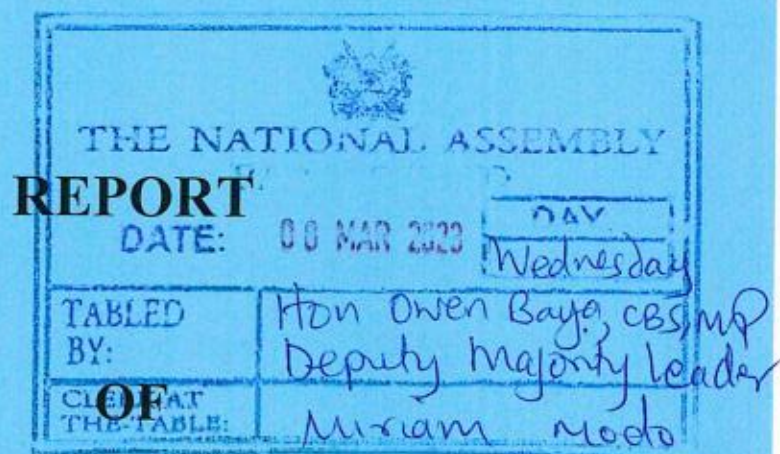 THE NATIONAL ASSEMBLY
REPORT
DATE: MAR 2023 DAY
Wednesday
TABLED BY: Hon Owen Baya, CBS, MP
Deputy Majority Leader
OF
CLERK AT THE-TABLE: Miriam Modo